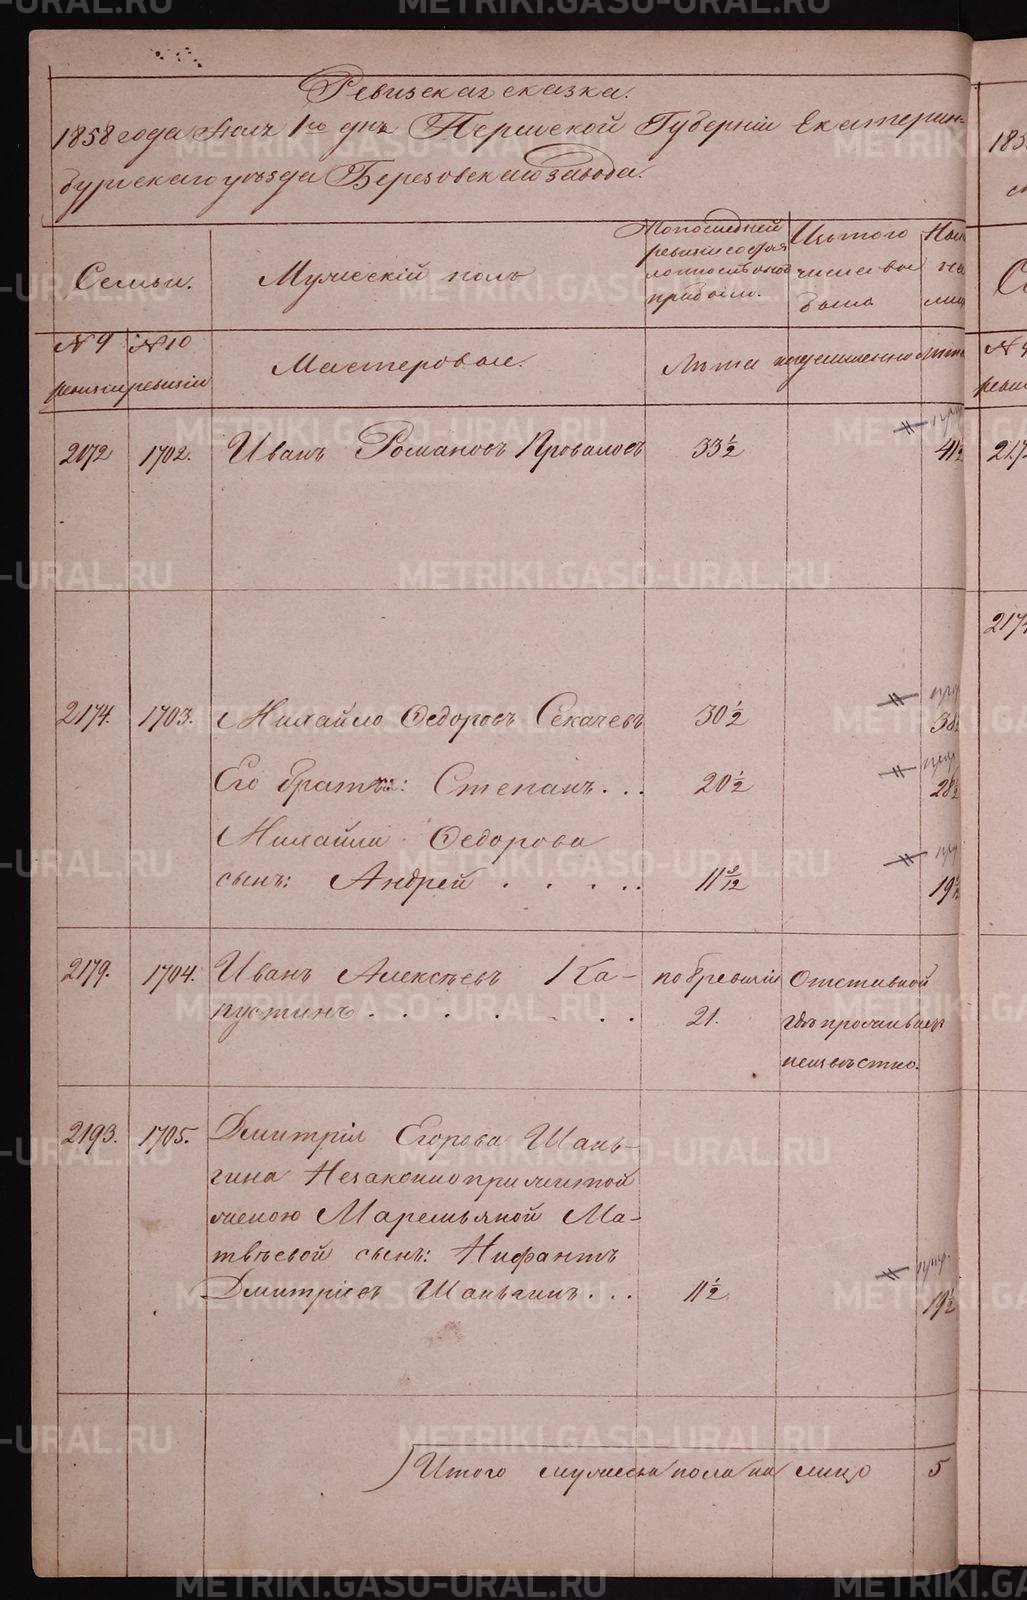 Ревизская сказка.
1858 года Июля 1го дня Пермской Губернiи Екатерин-
бургскаго уѣзда Березовскаго завода.
Семьи.
Мужескiй полъ
По последней
ревизiи состоя
ло и после оной
прибыло.
Изъ того
числа вы
было
Ныне
на
лицо
№ 9
ревизiи
№ 10
ревизiи
Мастеровые.
Лѣта
лѣта
2172 1702. Иванъ Романовъ Проваловъ 33½ 41½
2174. 1703. Михайло Ѳедоровъ Секачевъ 30½ 38½
Его братья: Степанъ... 20½ 28½
Михайлы Ѳедорова
сынъ: Андрей..... 19
2179. 1704. Иванъ Алексѣевъ Ка- по 8 ревизiи Отставной
пустинъ....... 21. гдѣ проживаетъ
неизвѣстно.
2193. 1705. Дмитрiя Егорова Шань-
гина Незаконноприжитой
женою Маремьяной Ма-
твѣевой сынъ: Нифантъ
Дмитрiевъ Шаньгинъ... 11½ 19½
Итого мужеска пола на лицо 5
METRIKI.GASO-URAL.RU